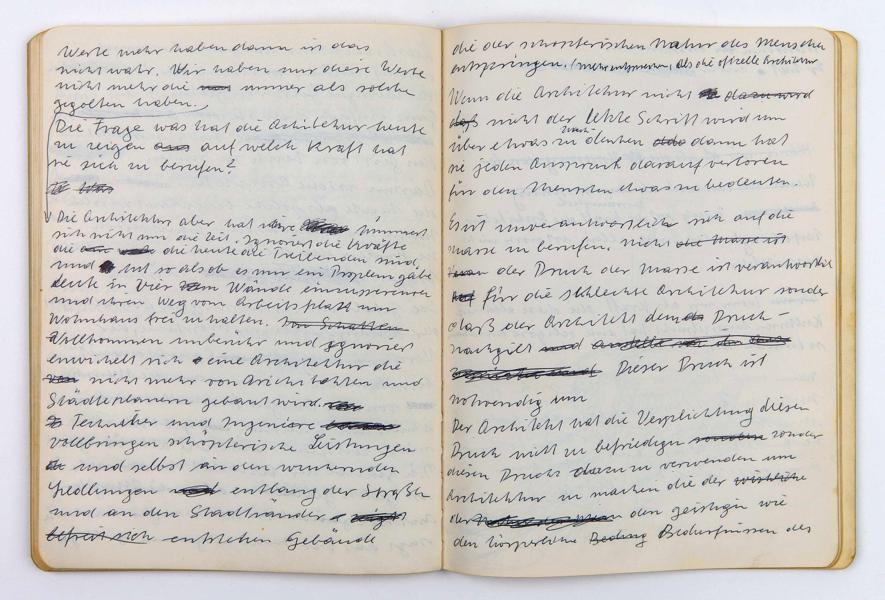 Werte mehr haben dann ist das
nicht wahr. Wir haben nur diese Werte
nicht mehr die immer als solche
gegolten haben.
Die Frage was hat die Achitektur heute
zu zeigen aus auf welche Kraft hat
sie sich zu berufen?
Was
Die Architektur aber hat kümmert
sich nicht um die Zeit. Ignoriert die Kräfte
die die heute die Treibenden sind,
und tut so als ob es nur ein Problem gäbe
Leute in vier Wände einzusperren
und ihren Weg vom Arbeitsplatz zum
Wohnhaus frei zu halten. Im Schatten
Vollkommen unberührt und ignoriert
entwickelt sich eine Architektur die
nicht mehr von Architekten und
Städteplanern gebaut wird.
Techniker und Ingenieure
vollbringen schöpferische Leistungen
und selbst in den wuchernden
Siedlungen entlang der Straßen
und an den Stadtränder
befreit sich entstehen Gebäude
die der schöpferischen Natur des Menschen
entspringen. (mehr entsprechen, als die offizielle Architektur
Wenn die Architektur nicht dazu wird
daß nicht der letzte Schritt wird um
über etwas nach zu denken dann hat
sie jeden Anspruch darauf verloren
für den Menschen etwas zu bedeuten.
Es ist unverantwortlich sich auf die
Masse zu berufen. Nicht die Masse ist
der Druck der Masse ist verantwortlich
für die schlechte Architektur sonder
daß der Architekt dem Druck-
nachgibt und anstelle
Dieser Druck ist
notwendig um
Der Architekt hat die Verplichtung diesen
Druck nicht zu befriedigen sondern sonder
diesen Drucks dazu zu verwenden um
Architektur zu machen die der
den geistigen wie
den körperliche Beding Bedürfnissen des